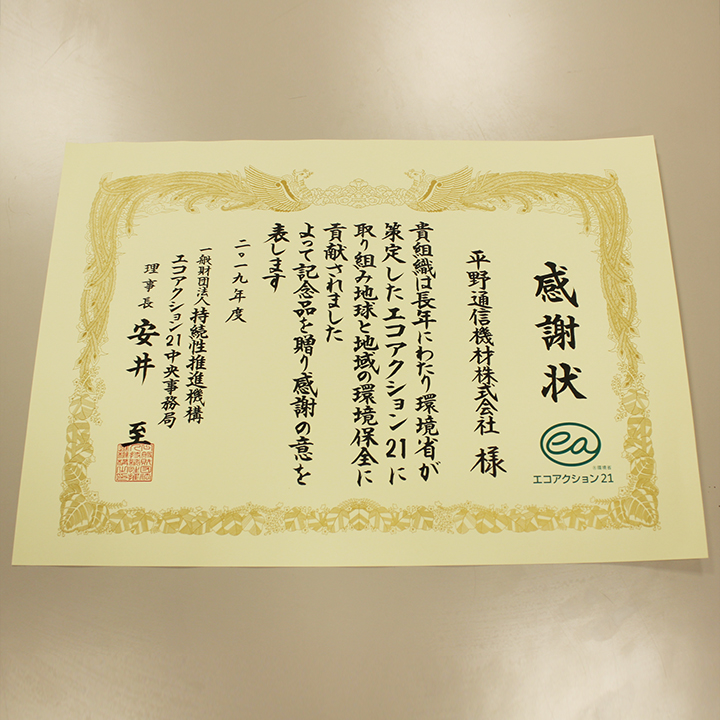 感謝状
ea
エコアクション21
平野通信機材株式会社 様
貴組織は長年にわたり環境省が
策定したエコアクション21に
取り組み地球と地域の環境保全に
貢献されました
よって記念品を贈り感謝の意を
表します
二〇一九年度
一般財団法人 持続性推進機構
エコアクション21中央事務局
理事長 安井 至